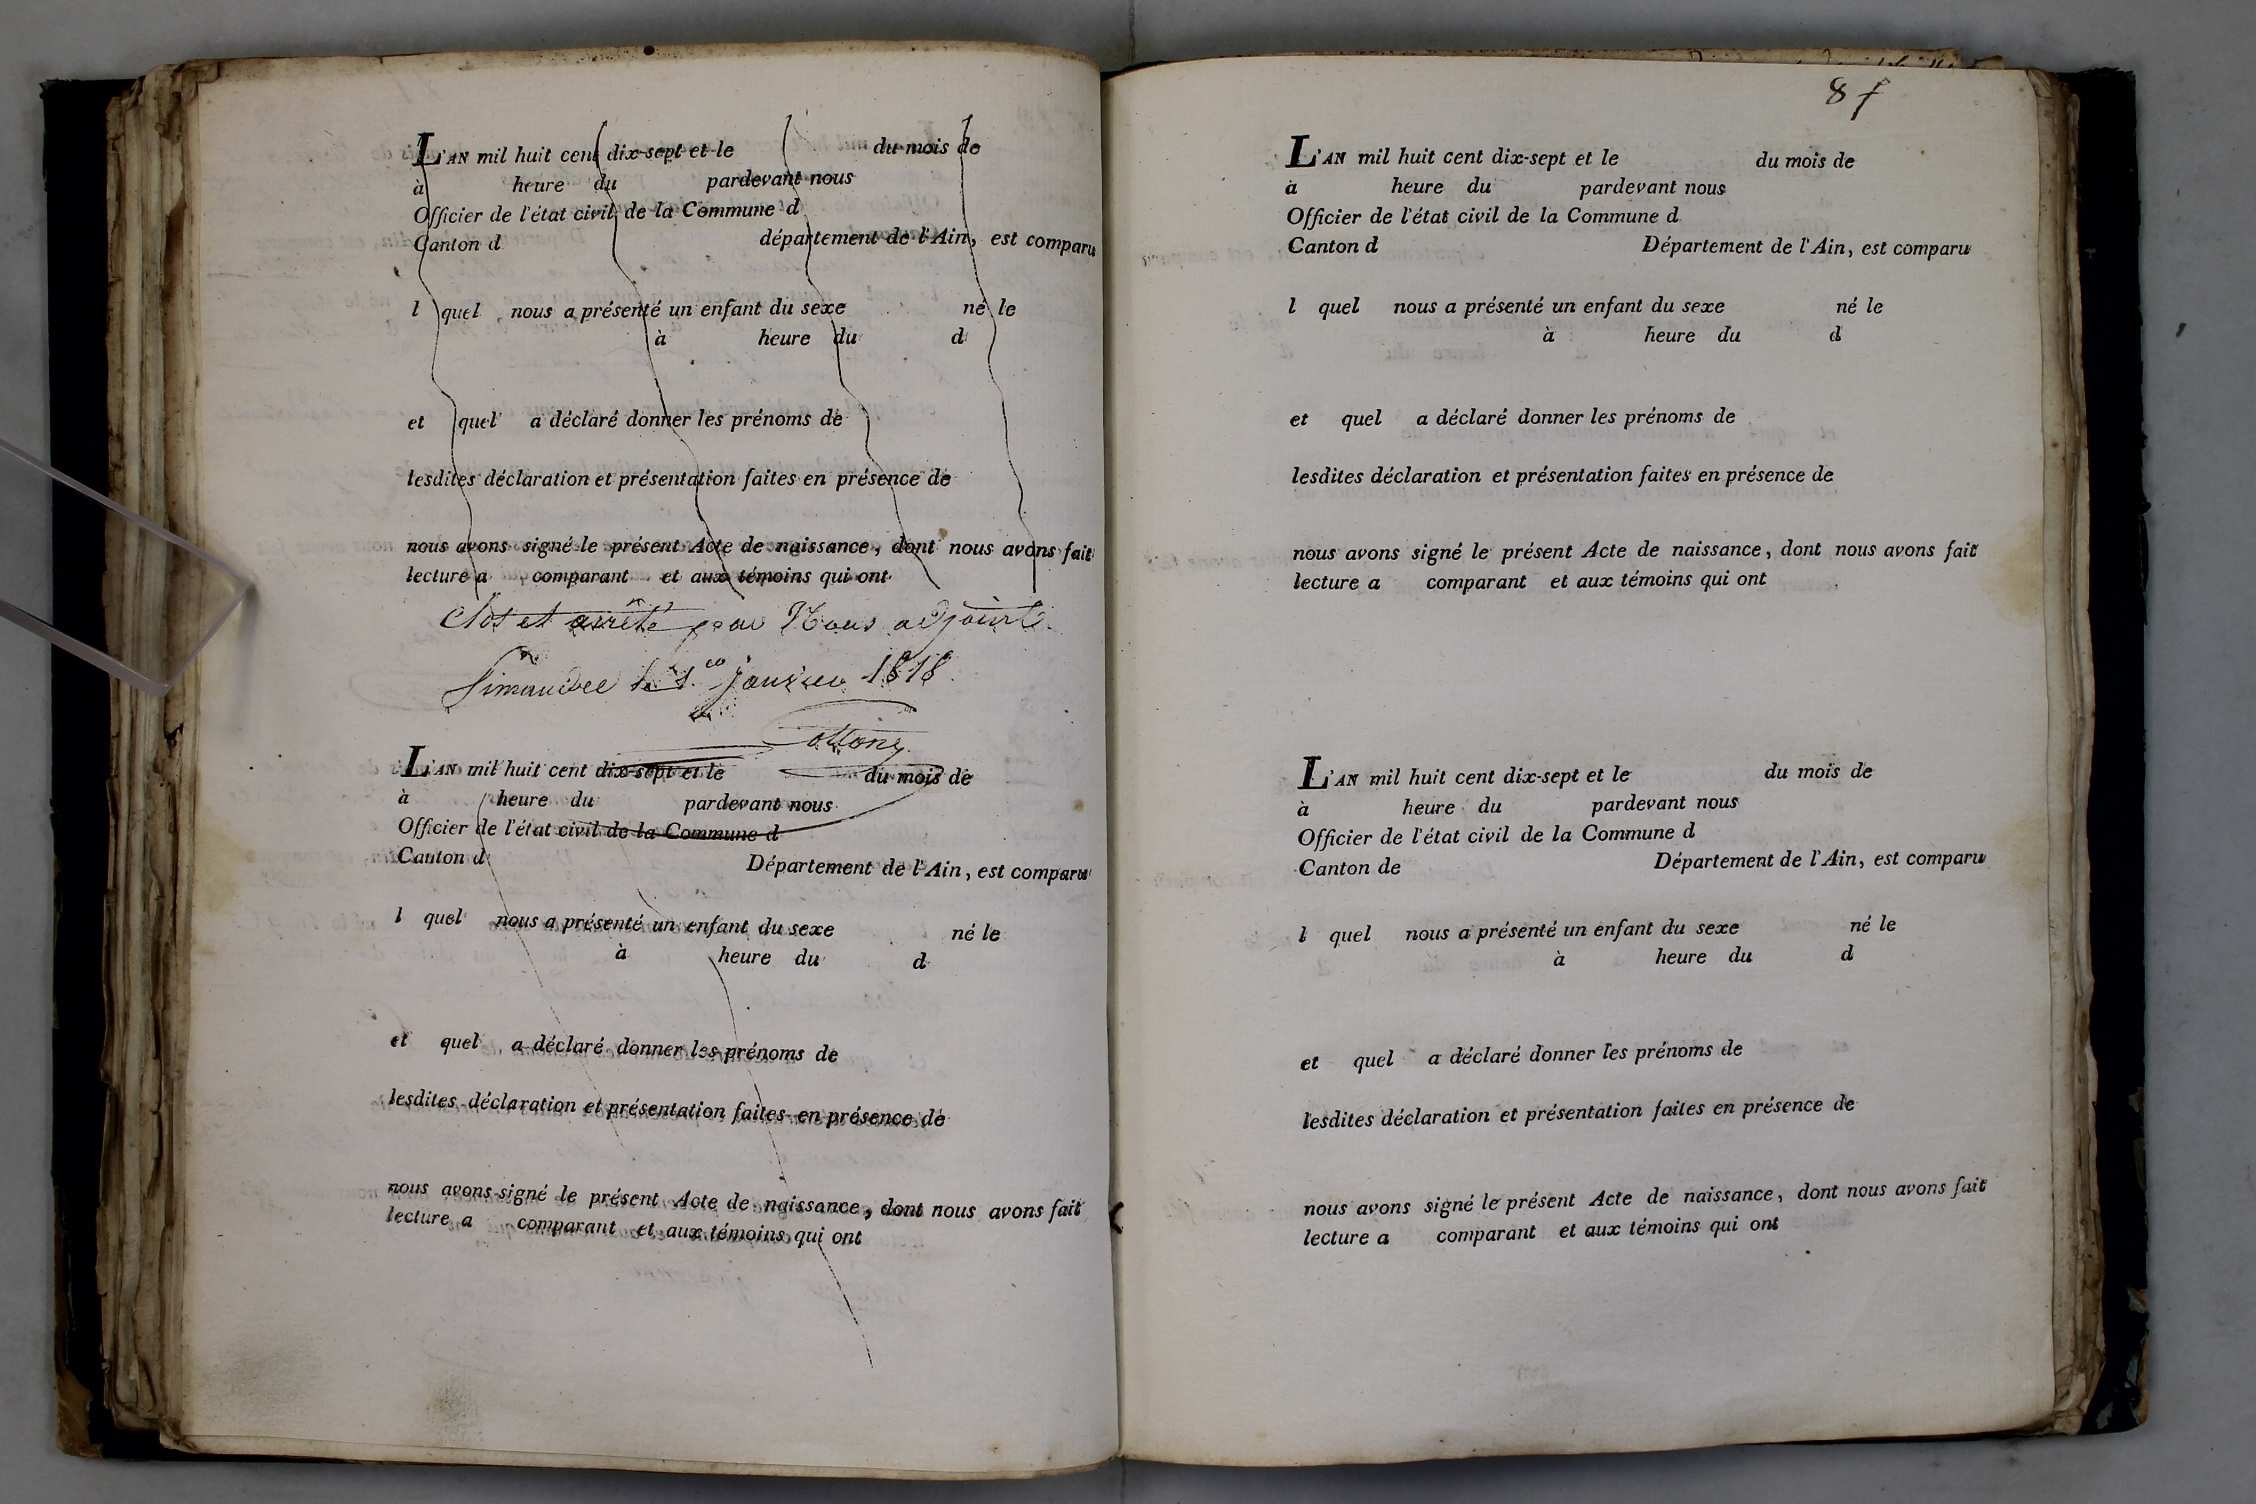 L'AN mil huit cent dix-sept et le du mois de
à heure du pardevant nous
Officier de l'état civil de la Commune d
Canton d département de l'Ain, est comparu
l quel nous a présenté un enfant du sexe né le
à heure du d
et quel a déclaré donner les prénoms de
lesdites déclaration et présentation faites en présence de
nous avons signé le présent Acte de naissance, dont nous avons fait
lecture a comparant et aux témoins qui ont
Clos et arrêté par Nous adjoint
Simandre le 1er Janvier 1818
L'AN mil huit cent dix-sept et le du mois de
à heure du pardevant nous
Officier de l'état civil de la Commune d
Canton d Département de l'Ain, est comparu
l quel nous a présenté un enfant du sexe né le
à heure du d
et quel a déclaré donner les prénoms de
lesdites déclaration et présentation faites en présence de
nous avons signé le présent Acte de naissance, dont nous avons fait
lecture a comparant et aux témoins qui ont
8 f
L'AN mil huit cent dix-sept et le du mois de
à heure du pardevant nous
Officier de l'état civil de la Commune d
Canton d Département de l'Ain, est comparu
l quel nous a présenté un enfant du sexe né le
à heure du d
et quel a déclaré donner les prénoms de
lesdites déclaration et présentation faites en présence de
nous avons signé le présent Acte de naissance, dont nous avons fait
lecture a comparant et aux témoins qui ont
L'AN mil huit cent dix-sept et le du mois de
à heure du pardevant nous
Officier de l'état civil de la Commune d
Canton de Département de l'Ain, est comparu
l quel nous a présenté un enfant du sexe né le
à heure du d
et quel a déclaré donner les prénoms de
lesdites déclaration et présentation faites en présence de
nous avons signé le présent Acte de naissance, dont nous avons fait
lecture a comparant et aux témoins qui ont